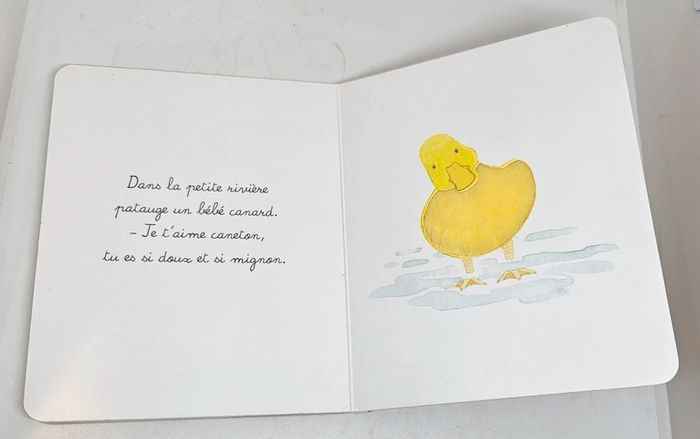 Dans la petite rivière
patauge un bébé canard.
- Je t'aime caneton,
tu es si doux et si mignon.